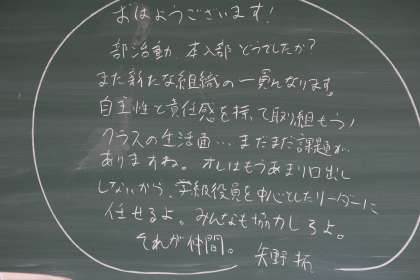 おはようございます!
部活動、本入部どうでしたか?
また新たな組織の一員となります。
自主性と責任感を持って取り組もう!
クラスの生活面…まだまだ課題が
ありますね。オレはもうあまり口出し
しないから、学級役員を中心としたリーダーに
任せるよ。みんなも協力しろよ。
それが仲間。 矢野 拓